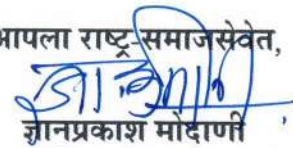 आपला राष्ट्र-समाजसेवेत,
ज्ञानप्रकाश मोदाणी